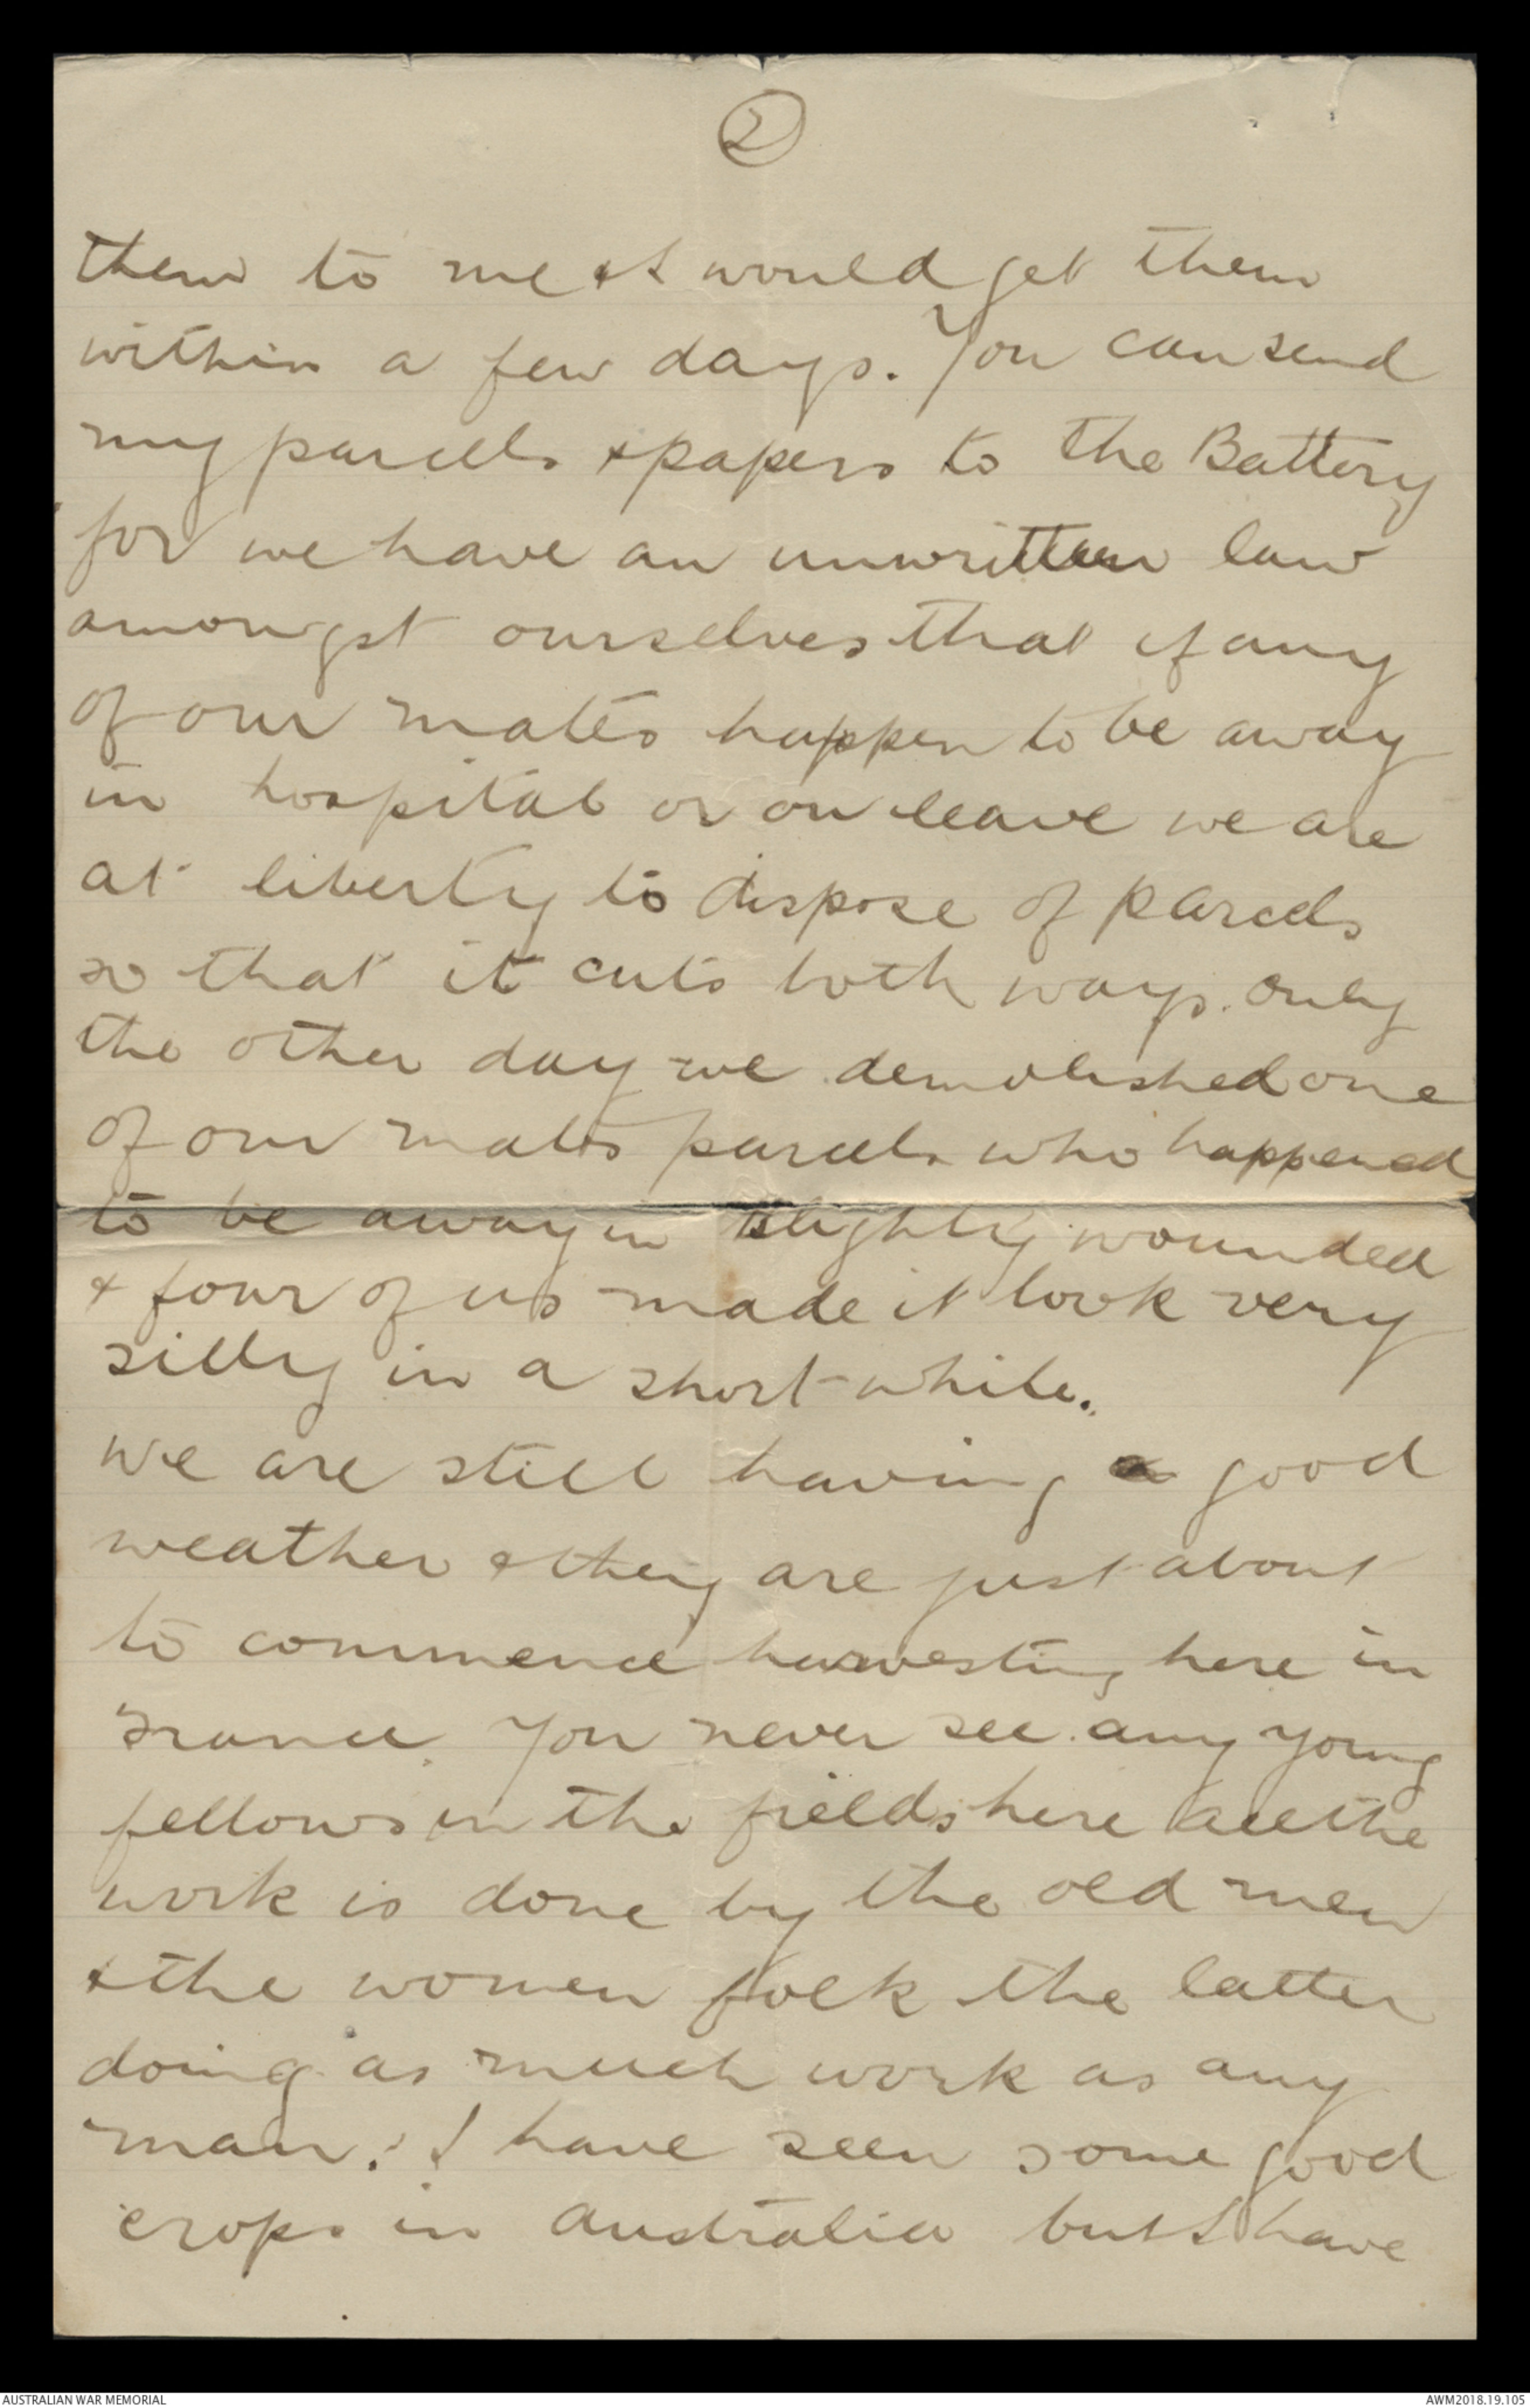 2
them to me & I would get them
within a few days. You can send
my parcels & papers to the Battery
for we have an unwritten law
amongst ourselves that if any
of our mates happen to be away
in hospital or on leave we are
at liberty to dispose of parcels
so that it cuts both ways. Only
the other day we demolished one
of our mates parcels who happened
to be away in slightly wounded
& four of us made it look very
silly in a short while.
we are still having good
weather & they are just about
to commence harvesting here in
France. You never see any young
fellows in the fields here all the
work is done by the old men
& the women folk the latter
doing as much work as any
man. I have seen some good
crops in Australia but I have
AUSTRALIAN WAR MEMORIAL
AWM2018.19.105